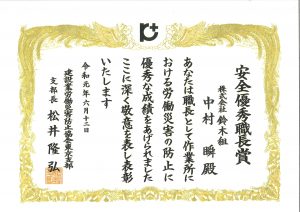 安全優秀職長賞
株式会社鈴木組
中村 瞬 殿
あなたは職長として作業所に
おける労働災害の防止に
優秀な成績をあげられました
ここに深く敬意を表し表彰
いたします
令和元年六月十三日
建設業労働災害防止協会東京支部
支部長 松井隆弘